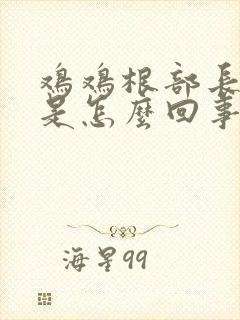 鸡鸡根部長
是怎麼回事
海星99